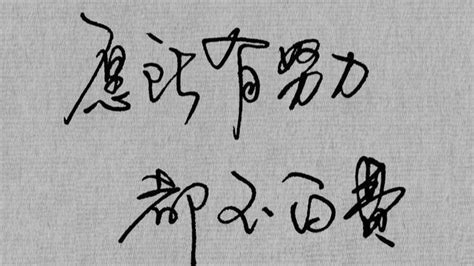 愿所有努力
都不白費